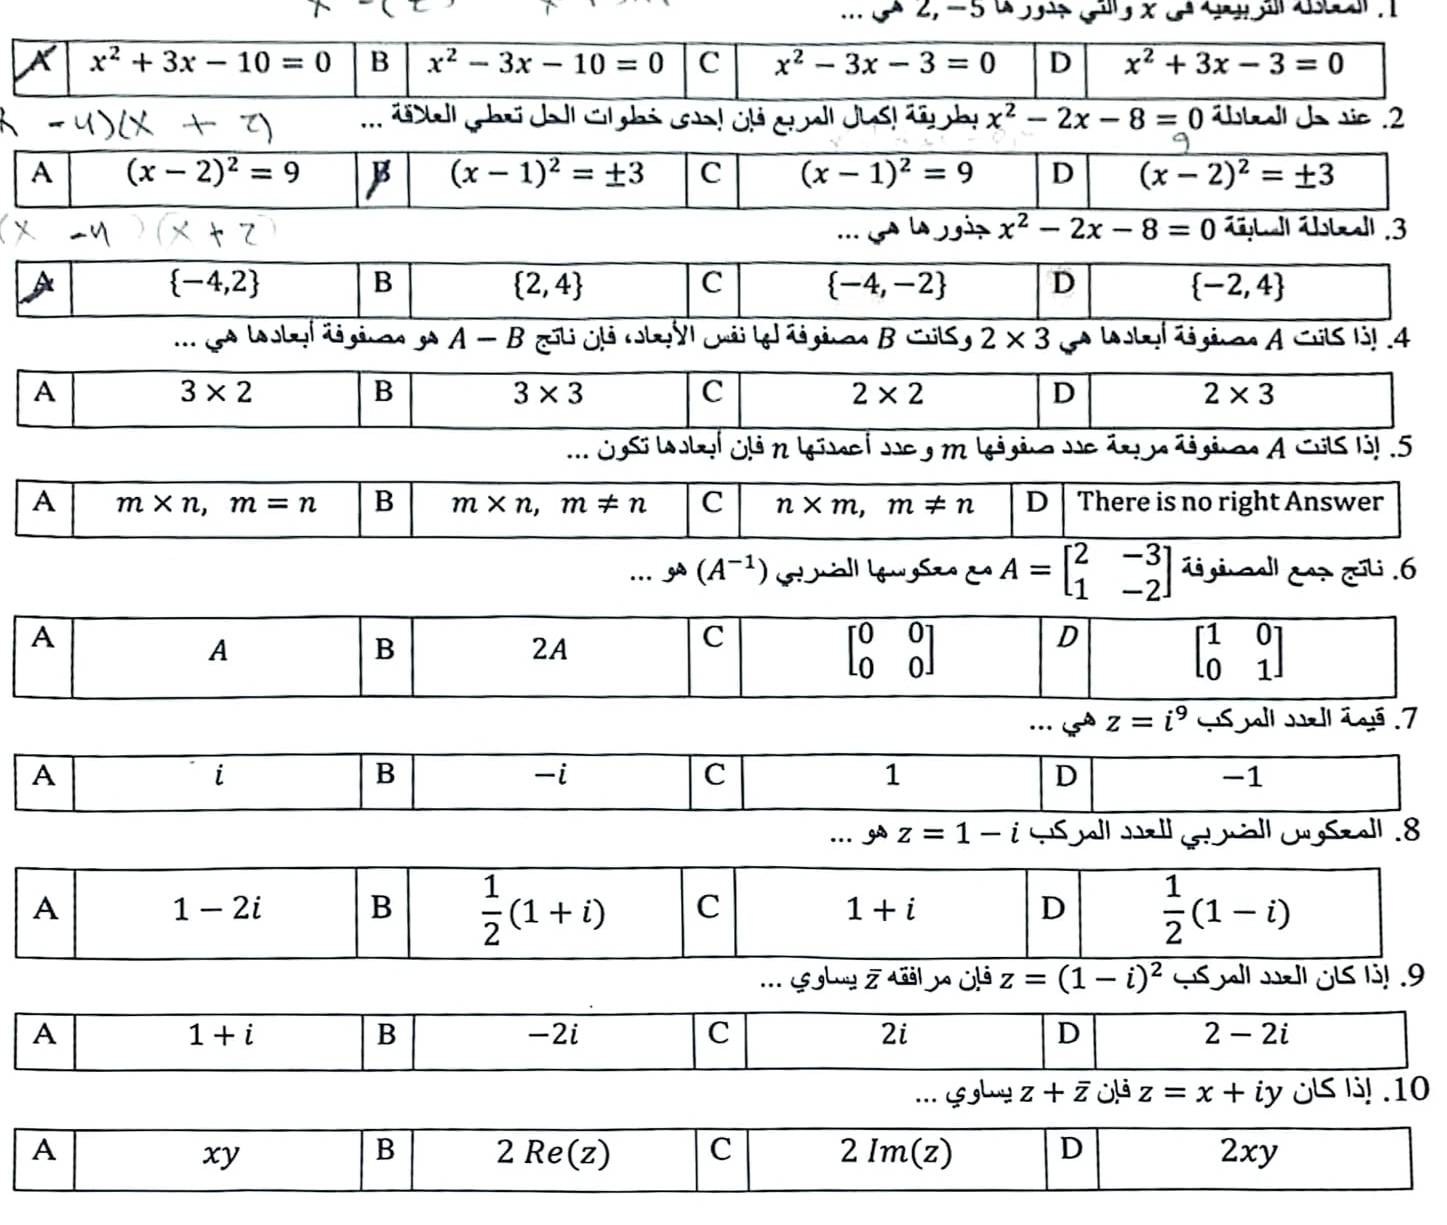 1. المعادلة التربيعية في x والتي جذورها 2, −5 هي ...
A x² + 3x − 10 = 0 B x² − 3x − 10 = 0 C x² − 3x − 3 = 0 D x² + 3x − 3 = 0
2. عند حل المعادلة x² − 2x − 8 = 0 بطريقة إكمال المربع فإن إحدى خطوات الحل تعطي العلاقة ...
-4)(x + 2)
9
A (x − 2)² = 9 B (x − 1)² = ±3 C (x − 1)² = 9 D (x − 2)² = ±3
3. المعادلة السابقة x² − 2x − 8 = 0 جذورها هي ...
(x -4)(x + 2)
A {−4,2} B {2, 4} C {−4, −2} D {−2, 4}
4. إذا كانت A مصفوفة أبعادها هي 2 × 3 وكانت B مصفوفة لها نفس الأبعاد، فإن ناتج A − B هو مصفوفة أبعادها هي ...
A 3 × 2 B 3 × 3 C 2 × 2 D 2 × 3
5. إذا كانت A مصفوفة مربعة عدد صفوفها m وعدد أعمدتها n فإن أبعادها تكون ...
A m × n, m = n B m × n, m ≠ n C n × m, m ≠ n D There is no right Answer
6. ناتج جمع المصفوفة A = [2 −3; 1 −2] مع معكوسها الضربي (A⁻¹) هو ...
A A B 2A C [0 0; 0 0] D [1 0; 0 1]
7. قيمة العدد المركب z = i⁹ هي ...
A i B −i C 1 D −1
8. المعكوس الضربي للعدد المركب z = 1 − i هو ...
A 1 − 2i B 1/2 (1 + i) C 1 + i D 1/2 (1 − i)
9. إذا كان العدد المركب z = (1 − i)² فإن مرافقه z̄ يساوي ...
A 1 + i B −2i C 2i D 2 − 2i
10. إذا كان z = x + iy فإن z + z̄ يساوي ...
A xy B 2 Re(z) C 2 Im(z) D 2xy